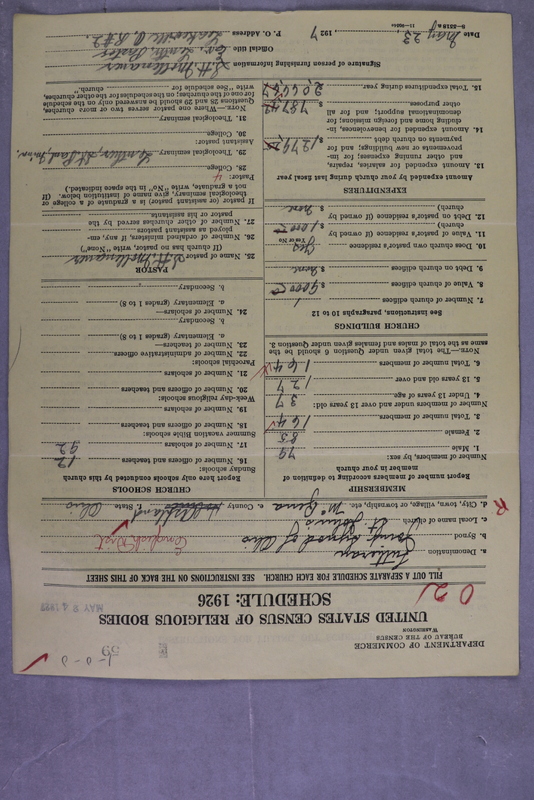 DEPARTMENT OF COMMERCE
BUREAU OF THE CENSUS
WASHINGTON
59
UNITED STATES CENSUS OF RELIGIOUS BODIES
SCHEDULE: 1926
MAY 24 1927
FILL OUT A SEPARATE SCHEDULE FOR EACH CHURCH. SEE INSTRUCTIONS ON THE BACK OF THIS SHEET
a. Denomination Lutheran
b. Synod Joint Synod of Ohio English Dist
c. Local name of church St. Johns
d. City, town, village, or township, etc. McZena e. County Ashland f. State Ohio
MEMBERSHIP
Report number of members according to definition of member in your church
Number of members, by sex:
1. Male 79
2. Female 85
3. Total number of members 164
Number of members under and over 13 years old:
4. Under 13 years of age 37
5. 13 years old and over 127
6. Total number of members 164
NOTE.—The total given under Question 6 should be the same as the total of males and females given under Question 3.
CHURCH BUILDINGS
See instructions, paragraphs 10 to 12
7. Number of church edifices 1
8. Value of church edifices $ 9000
9. Debt on church edifices $ None
10. Does church own pastor's residence Yes
Yes or No
11. Value of pastor's residence (if owned by church) $
12. Debt on pastor's residence (if owned by church) $ None
EXPENDITURES
Amount expended by your church during last fiscal year
13. Amount expended for salaries, repairs, and other running expenses; for improvements or new buildings; and for payments on church debt $
14. Amount expended for benevolences, including home and foreign missions; for denominational support; and for all other purposes. $
15. Total expenditures during year $
CHURCH SCHOOLS
Report here only schools conducted by this church
Sunday schools:
16. Number of officers and teachers 12
17. Number of scholars 92
Summer vacation Bible schools:
18. Number of officers and teachers
19. Number of scholars
Week-day religious schools:
20. Number of officers and teachers
21. Number of scholars
Parochial schools:
22. Number of administrative officers
23. Number of teachers—
a. Elementary (grades 1 to 8)
b. Secondary
24. Number of scholars—
a. Elementary (grades 1 to 8)
b. Secondary
PASTOR
25. Name of pastor
(If church has no pastor, write "None")
26. Number of ordained ministers, if any, employed as assistant pastors
27. Number of other churches served by the pastor or his assistants
If pastor (or assistant pastor) is a graduate of a college or theological seminary, give name of institution below. (If not a graduate, write "No" in the space indicated.)
Pastor: 4
28. College
29. Theological seminary Luther, St Paul, Minn.
Assistant pastor:
30. College
31. Theological seminary
NOTE.—Where one pastor serves two or more churches, Questions 25 and 29 should be answered only on the schedule for one of the churches; on the schedules for the other churches, write "See schedule for church."
Signature of person furnishing information
Official title Ev. Luth. Pastor
Date May 23, 1927 P. O. Address